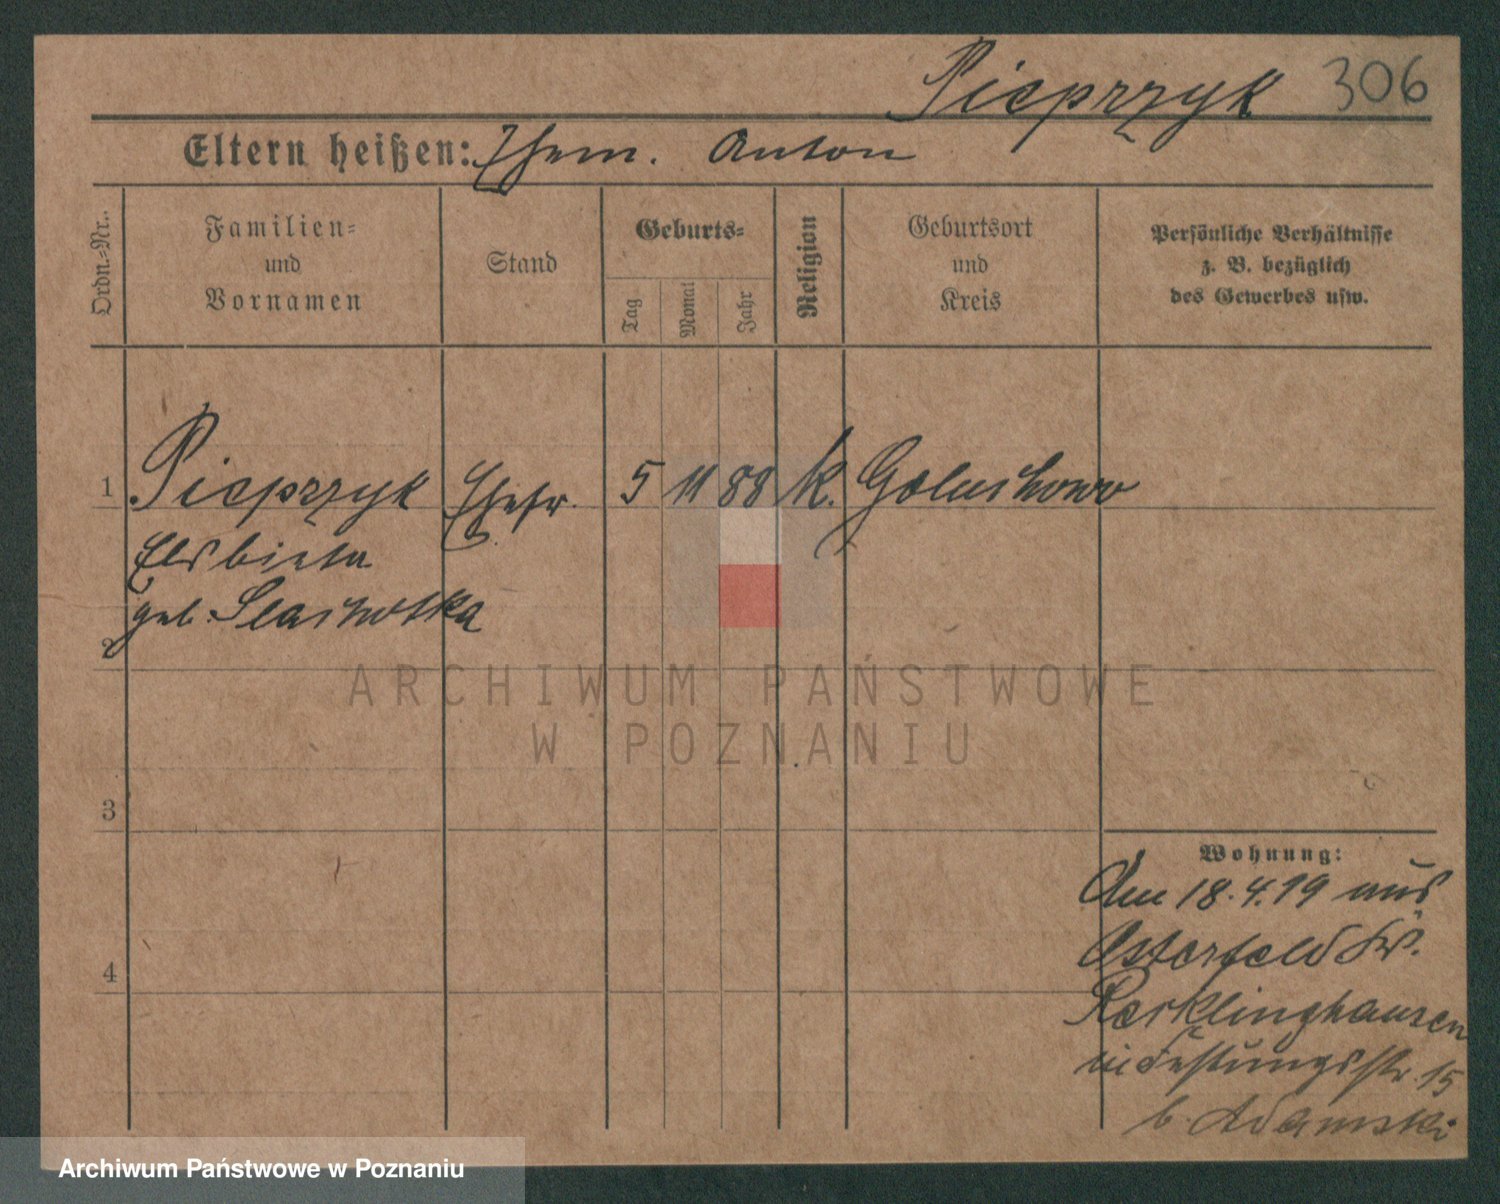 Pieprzyk 306
Eltern heißen: Ehem. Anton
Ordn.-Nr.
Familien=
und
Vornamen
Stand
Geburts=
Tag
Monat
Jahr
Religion
Geburtsort
und
Kreis
Persönliche Verhältnisse
z. B. bezüglich
des Gewerbes usw.
1 Pieprzyk Ehefr. 5 11 88 k. Goluchowo
Elsbieta
geb.
2
3
4
Wohnung:
Am 18.4.19 aus
Osterfeld Kr.
Recklinghausen
in Festungsstr. 15
b. Adamski
ARCHIWUM PAŃSTWOWE
W POZNANIU
Archiwum Państwowe w Poznaniu